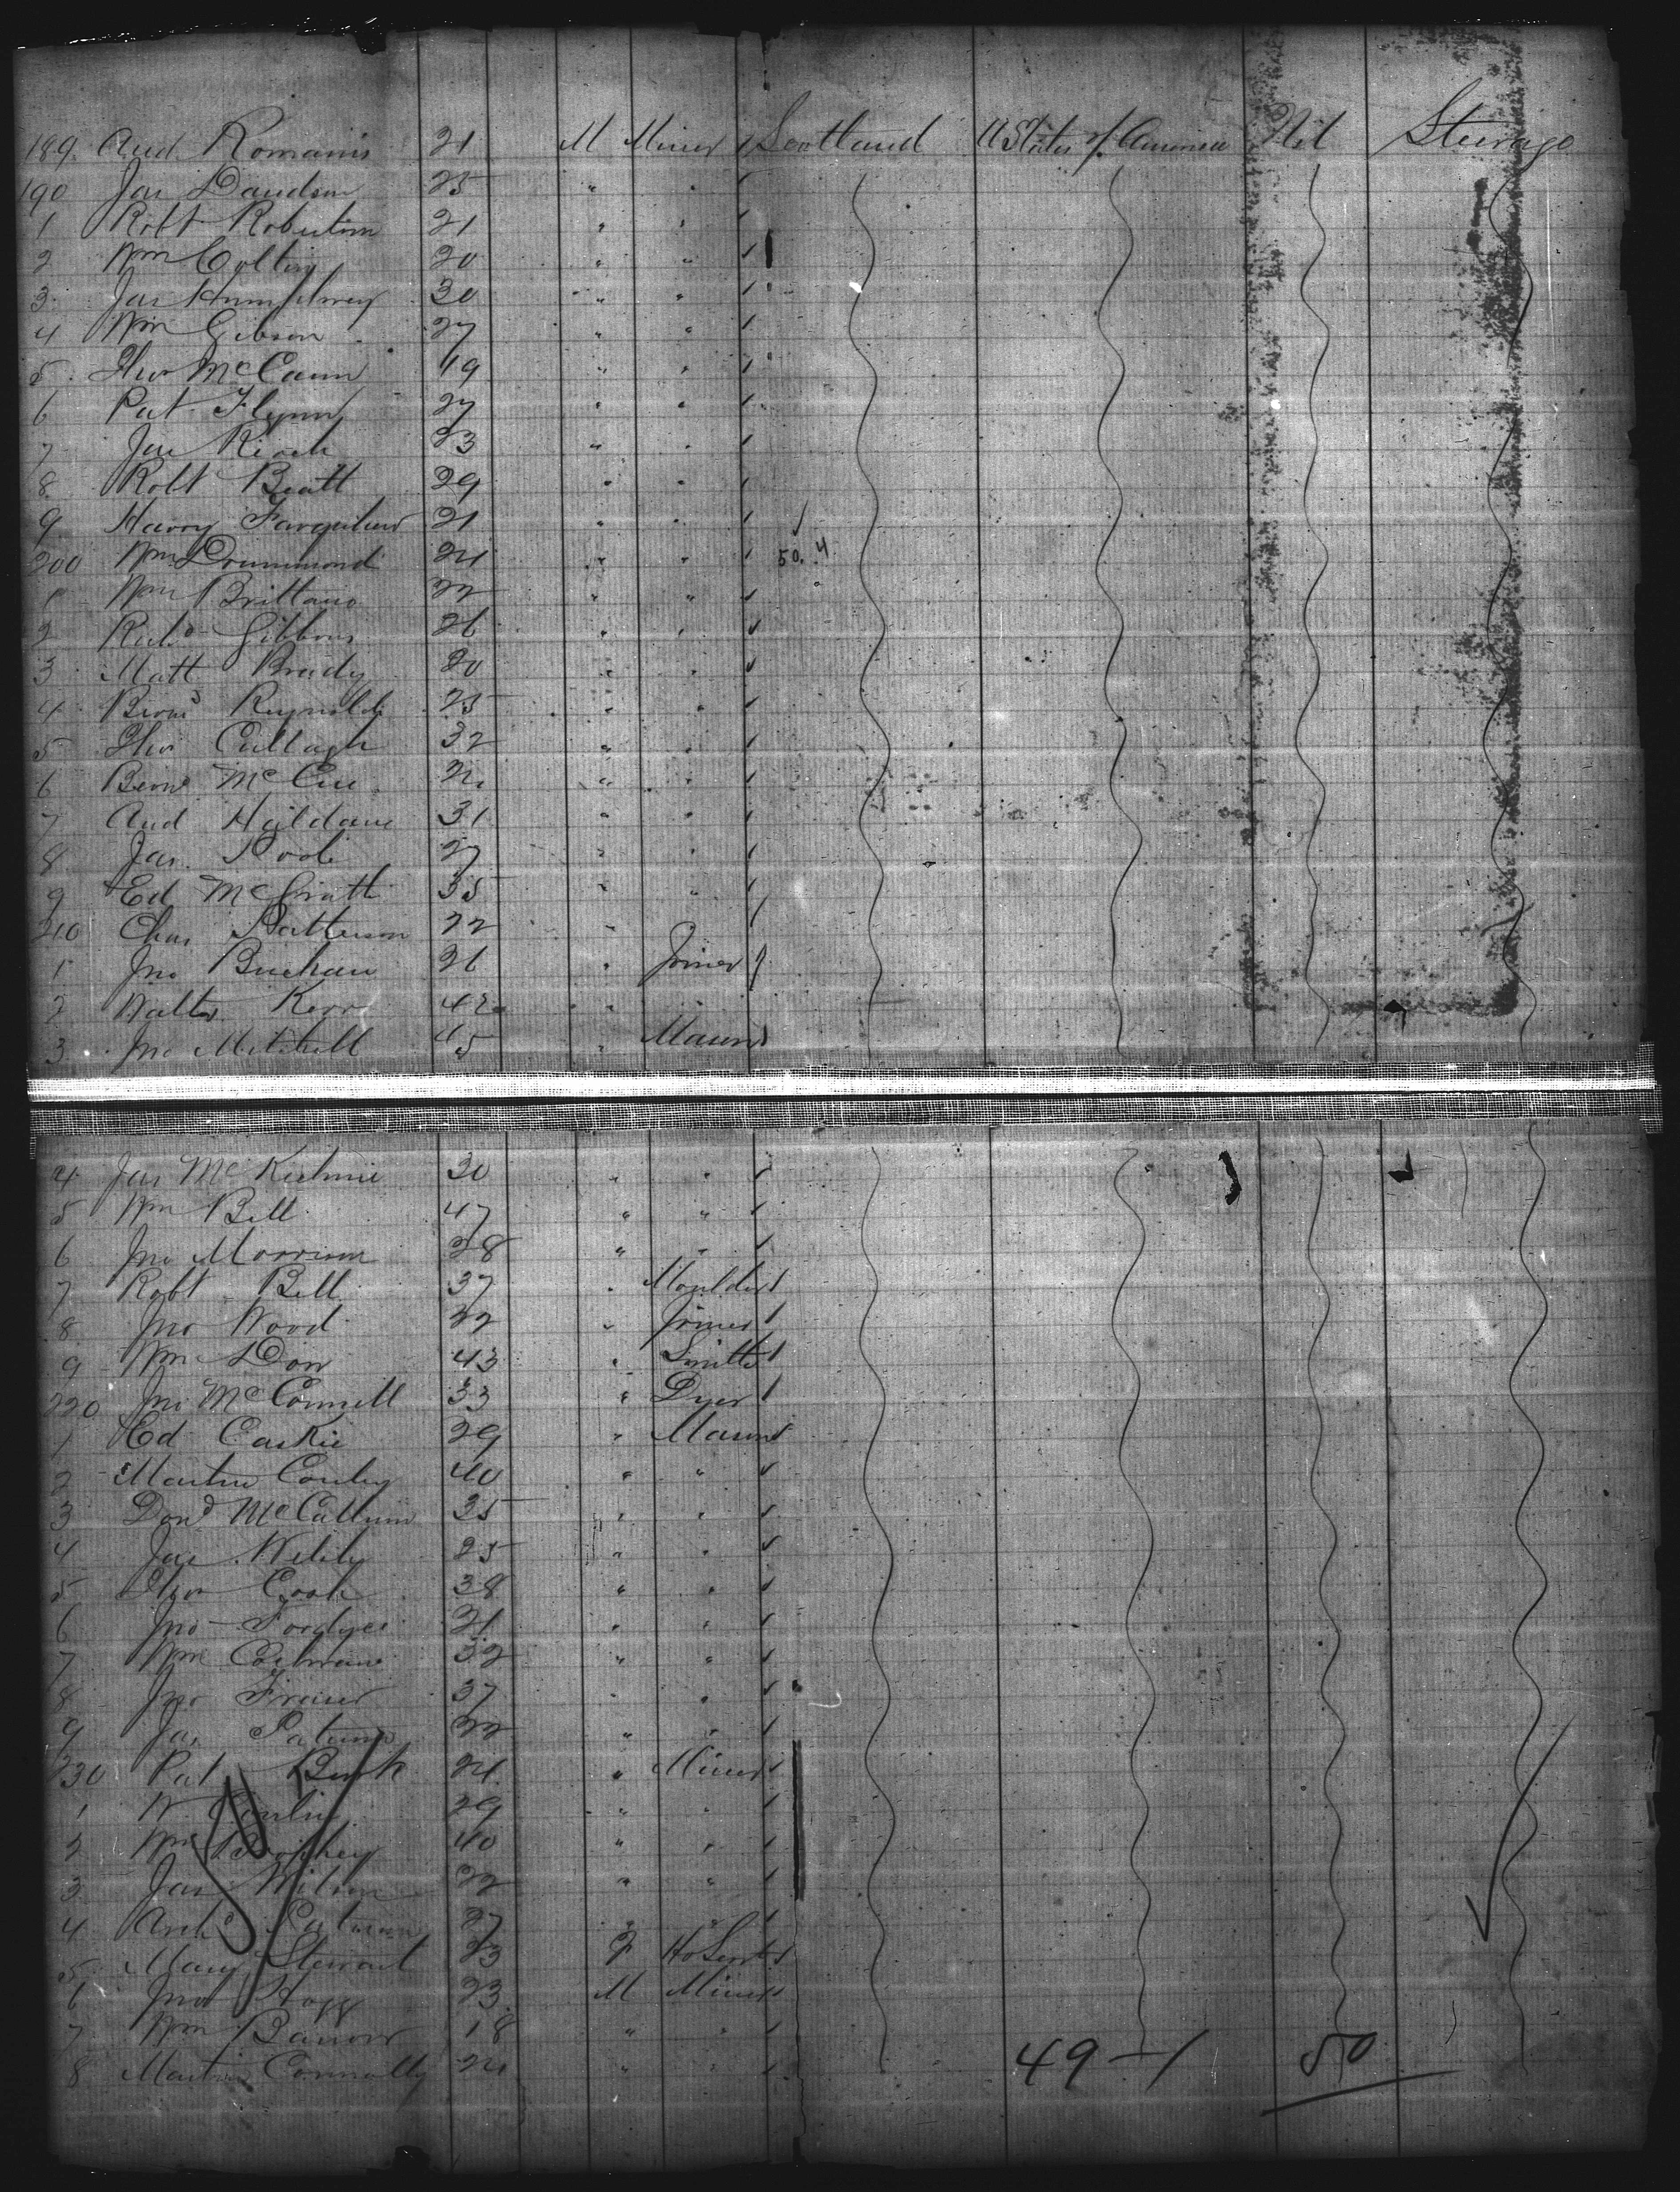 189 And Romanis 21 M Miner Scotland U States of America Nil Steerage
190 Jas Davidson 25 " "
1 Robt Robertson 21 " "
2 Wm Collins 20 " "
3 Jas Humphrey 30 " "
4 Wm Gibson 27 " "
5 Thos McCann 19 " "
6 Pat Flynn 27 " "
7 Jas 23 " "
8 Robt Beatt 29 " "
9 Harry Farquhar 21 " "
200 Wm Drummond 24 " " 50. 4
1 Wm Brittano 22 " "
2 Richd Gibbons 26 " "
3 Matt Brady 20 " "
4 Reynolds 25 " "
5 Thos Cullagh 32 " "
6 McCue " "
7 And Haldane 31 " "
8 Jas 27 " "
9 Ed McGrath 35 " "
210 Chas Patterson 22 "
1 Jno Buchan 26 " Joiner
2 Walter Kerr 42 "
3 Jno Mitchell 45 " Mason
4 Jas McKechnie 30 " "
5 Wm Bell 47 " "
6 Jno Morrison 38 " "
7 Robt Bell 37 " Moulder
8 Jno Wood 32 " Joiner
9 Wm Dow 43 " Smith
220 Jno McConnell 33 " Dyer
1 Ed Caskie 29 " Mason
2 Martin Conley 40 " "
3 Dond McCallum 35 " "
4 Jas 25 " "
5 Thos Cook 38 " "
6 Jno Fordyce 21 " "
7 Wm Cochrane 32 " "
8 Jno Fraser 37 " "
9 Jas 22 " "
230 Pat 24 " Miner
1 W 29 " "
2 Wm 40 " "
3 Jas Wilson 22 " "
4 Archd 27 " "
5 Mary Stewart 23 F Ho Servt
6 Jno Hogg 23 M Miner
7 Wm Barrow 18 " "
8 Martin Connolly 24 " "
49 – 1 50